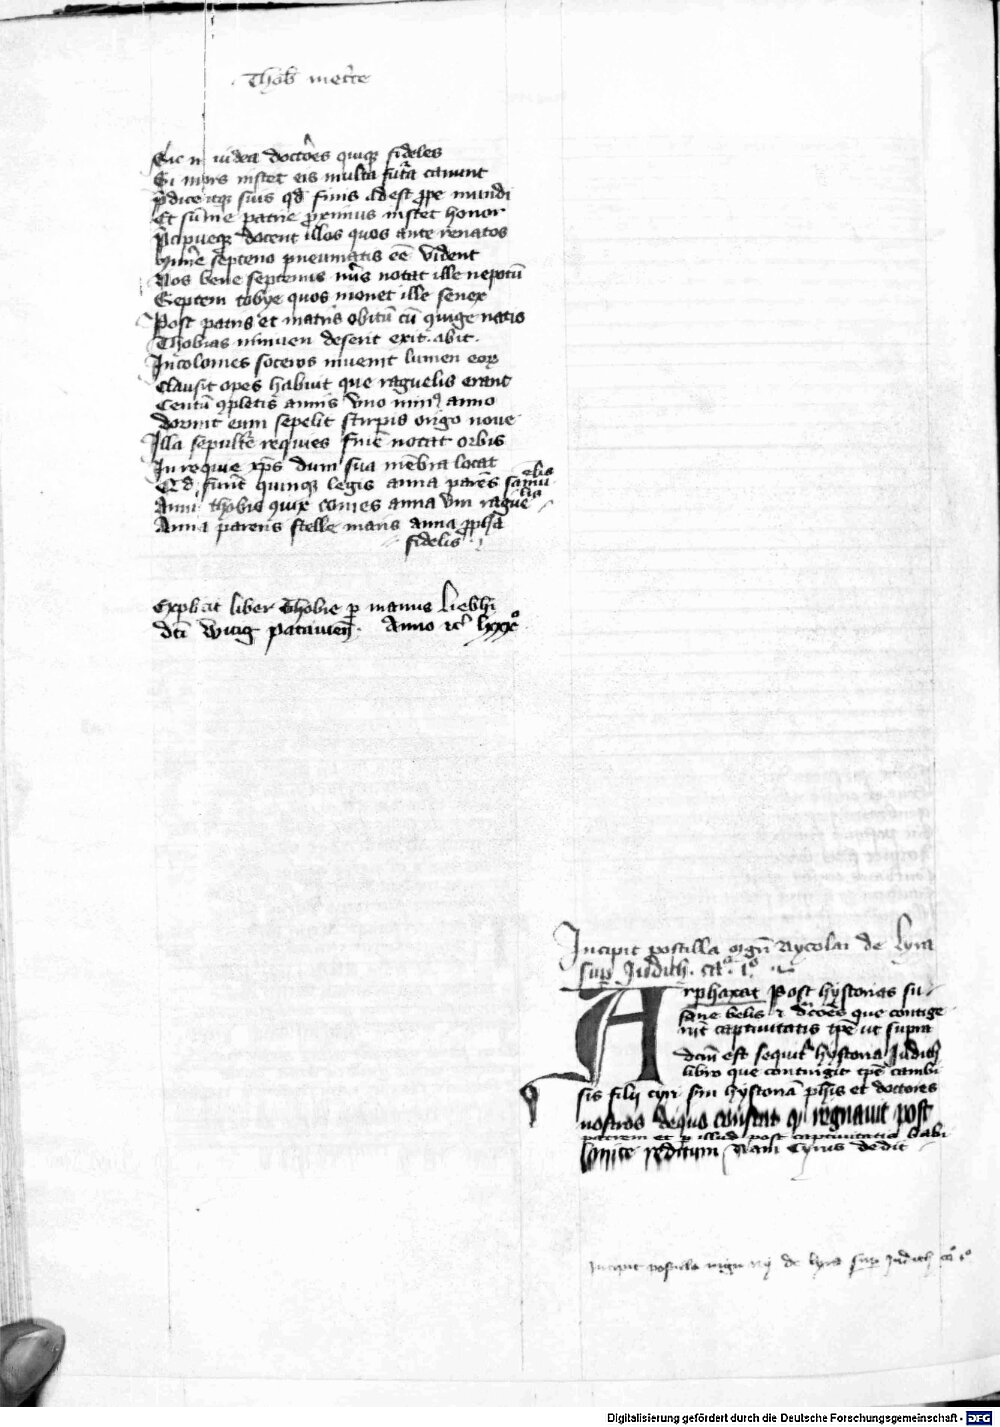 Thob metrice
Sic n iudea doctores quoque fideles
Si mors instet eis multa futura canunt
p̄dicitque suis qđ finis adest ꝓpe mundi
Et sum̄e patrie ꝓximus instet honor
docent illos quos ante renatos
septeno pneumatis eē vident
Nos bene septenus nūs notat ille nepotū
Septem tobye quos monet ille senex
Post patris et matris obitū cū ꝯiuge natis
Thobias niniuen deserit exit abit
Incolomes soceros inuenit lumen eoꝝ
Clausit opes habuit que raguelis erant
Centū ꝯpletis annis vno minꝰ anno
dormit eum sepelit stirpis origo noue
Illa sepulture requies finē notat orbis
In requie xp̄s dum sua mēbra locat
Qđ fuint quinque legis anna parēs samu
elis
Anna thobie ꝯiux comes anna viri rague
lis
Anna parens stelle maris anna ꝓph̄a
fidelis
Explicit liber Thobie ꝑ manus Liebh̄i
dc̄i wirig patauien̄ Anno rc̄ lxxxº
Incipit postilla mgr̄i Nycolai de Lyra
suꝑ Judith. ca. 1º
Arphaxat Post hystorias su
sane belis et dcoēs que contige
rūt captiuitatis tp̄e ut supra
dcm̄ est sequit̉ hystoria Judith
libro que contingit tp̄e cambi
sis filij cyri scm̄ hystoriā ph̄is et doctores
nostros de quo constat qꝫ regnauit post
patrem et ꝑ illud post captiuitatis babi
lonice reditum Nam Cyrus dedit
Incipit postilla mgri nij de lyra suꝑ Judith ca 1º
Digitalisierung gefördert durch die Deutsche Forschungsgemeinschaft - DFG